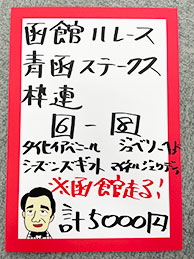 函館11レース
青函ステークス
枠連
6-8
タイセイアベニール ジョーマンデリン
シーズンズギフト マイネルジェロディ
※函館走る!
計5000円